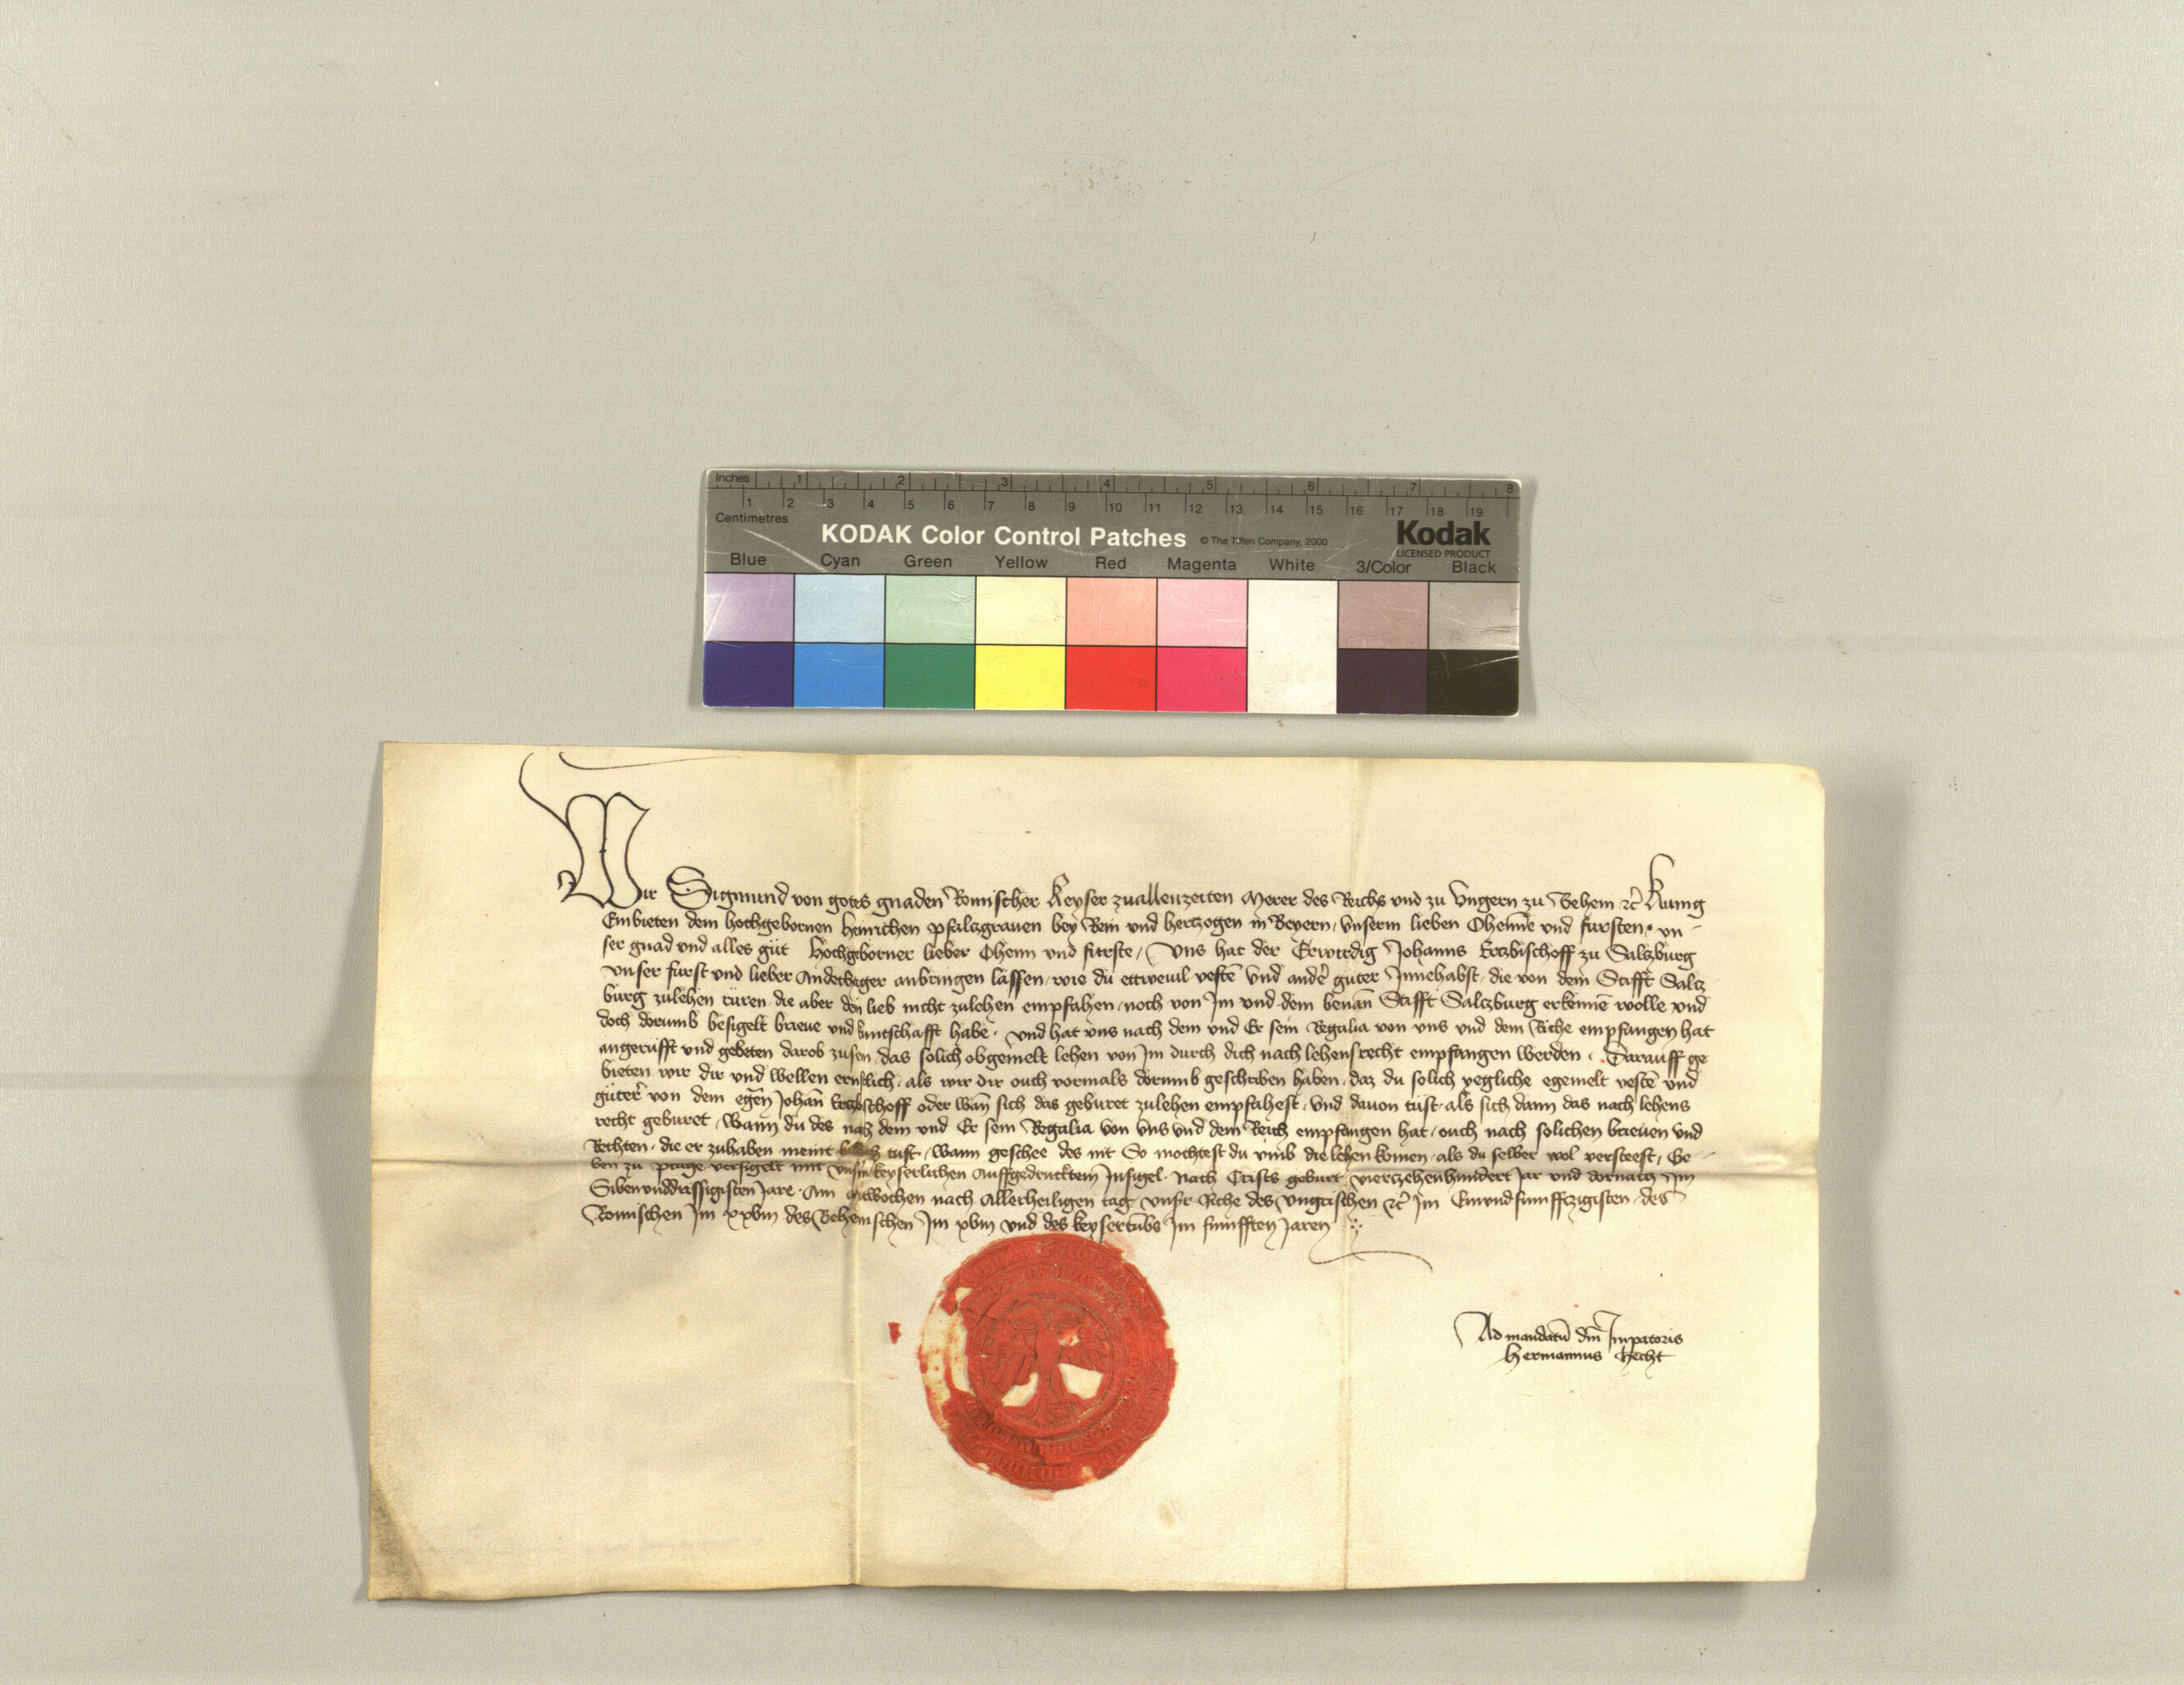 Inches 1 2 3 4 5 6 7 8
1 2 3 4 5 6 7 8 9 10 11 12 13 14 15 16 17 18 19
Centimetres
KODAK Color Control Patches © The Tiffen Company, 2000 Kodak
LICENSED PRODUCT
Blue Cyan Green Yellow Red Magenta White 3/Color Black
Wir Sigmund von gotes gnaden Romischer Keyser zuallenzeiten Merer des Reichs und zu Ungern zu Behem ꝛc̄ Kunig
Embieten dem hochgebornen Heinrichen pfalczgrauen bey Rein und herczogen in Beyern, Unserm lieben Oheim̄e und fursten, un-
ser gnad und alles gut Hochgeborner lieber Oheim und furste, Uns hat der Erwirdig Johanns Erczbischoff zu Salczburg
unser furst und lieber Andechtiger anbringen lassen, wie du ettweuil vestē und andēr guter Innehabst, die von dem Stifft Salcz
burg zulehen ruren, die aber dein lieb nicht zulehen empfahen, noch von Im und dem benan̄ Stifft Salczburg erkennē wolle und
doch dorumb besigelt brieue und kuntschafft habe, und hat uns nach dem und Er sein Regalia von uns und dem Riche empfangen hat
angerufft und gebeten darob zusein, das solich obgemelt lehen von Im durch dich nach lehensrecht empfangen werden, Darauff ge
bieten wir dir und wellen ernstlich, als wir dir ouch vormals dorumb geschriben haben, daz du solich yegliche egemelt vestē und
güter von dem egen̄ Johan̄ Erczbischoff oder wan̄ sich das geburet zulehen empfahest, und dauon tust, als sich dann das nach lehens
recht geburet, Wann du des nach dem und Er sein Regalia von uns und dem Reich empfangen hat, ouch nach solichen brieuen und
Rechten, die er zuhaben meint billich tust, Wann geschee des nit So mochtest du umb die lehen komen, als du selber wol versteest, Ge-
ben zu Prage versigelt mit unserm keyserlichen Auffgedrucktem Insigel, Nach Crists geburt vierczehenhundert Jar und dornach Im
Sibenunddrissigisten Jare, Am mitwochen nach Allerheiligen tag, unsr̄ Riche des Ungrischen ꝛc̄ Im Einundfunffczigisten, des
Romischen Im xxviij des Behemischen Im xviij und des keysertūbs Im funfften Jaren
Ad mandatū dn̄i Imp̄atoris
Hermannus Hecht